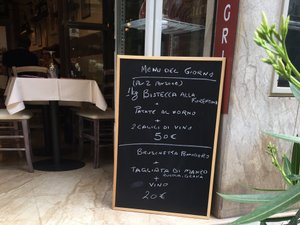 MENU DEL GIORNO
(X 2 PERSONE)
1kg BISTECCA ALLA
FIORENTINA
+
PATATE AL FORNO
+
2 CALICI DI VINO
50€
BRUSCHETTA POMODORO
+
TAGLIATA DI MANZO
RUCOLA, GRANA
VINO
20€
GRI